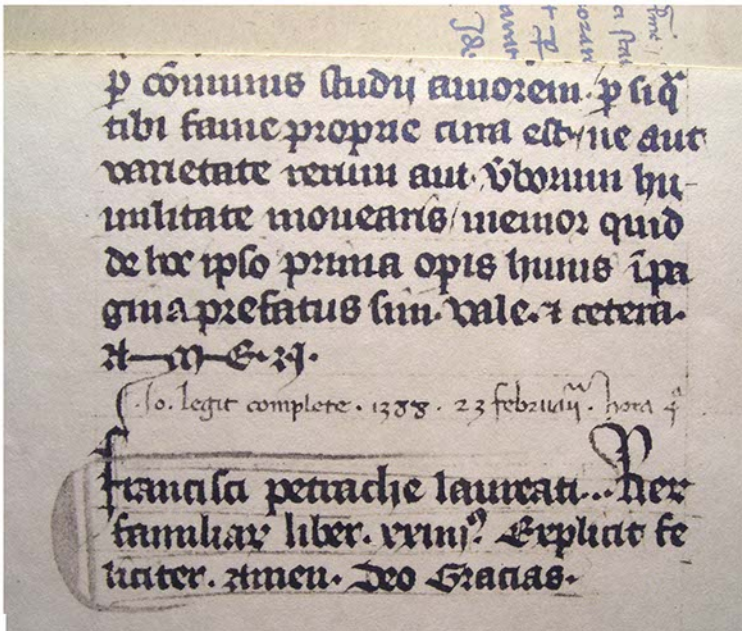 ꝑ cōmunis studij amorem. ꝑ siq̄
tibi fame proprie cura est, ne aut
varietate rerum aut v̄borum hu-
militate mouearis/ memor quid
de hoc ipso prima opis huius īpa
gina prefatus sim. vale. ⁊ cetera.
A—M—E.N.
.Io. legit complete. 1388. 23 februarij. hora 4ª
Francisci petrache laureati... Rer
familiar liber. xxiiijº. Explicit fe
liciter. Amen. Deo Gracias.